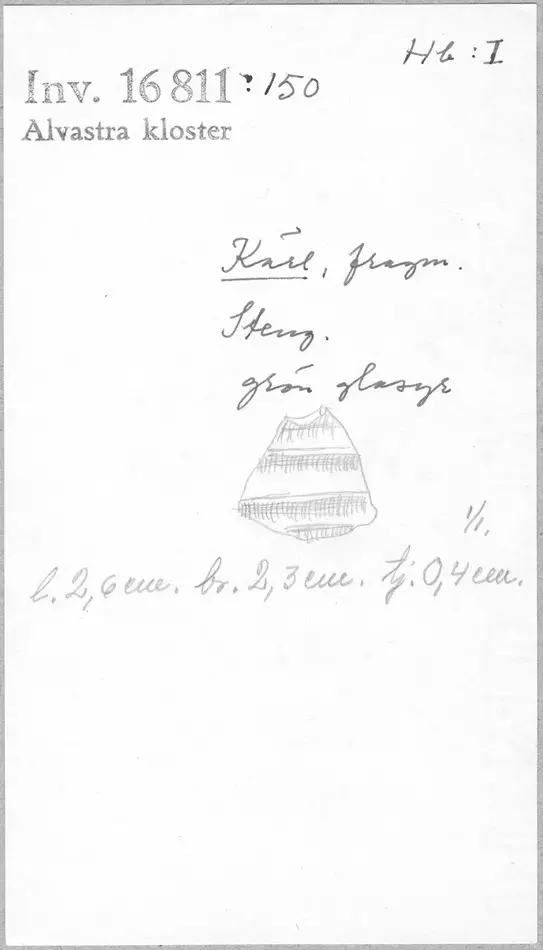 Hb : I
Inv. 16811 : 150
Alvastra kloster
Kärl, fragm.
Steng.
grön glasyr
1/1.
l. 2,6 cm. br. 2,3 cm. tj. 0,4 cm.